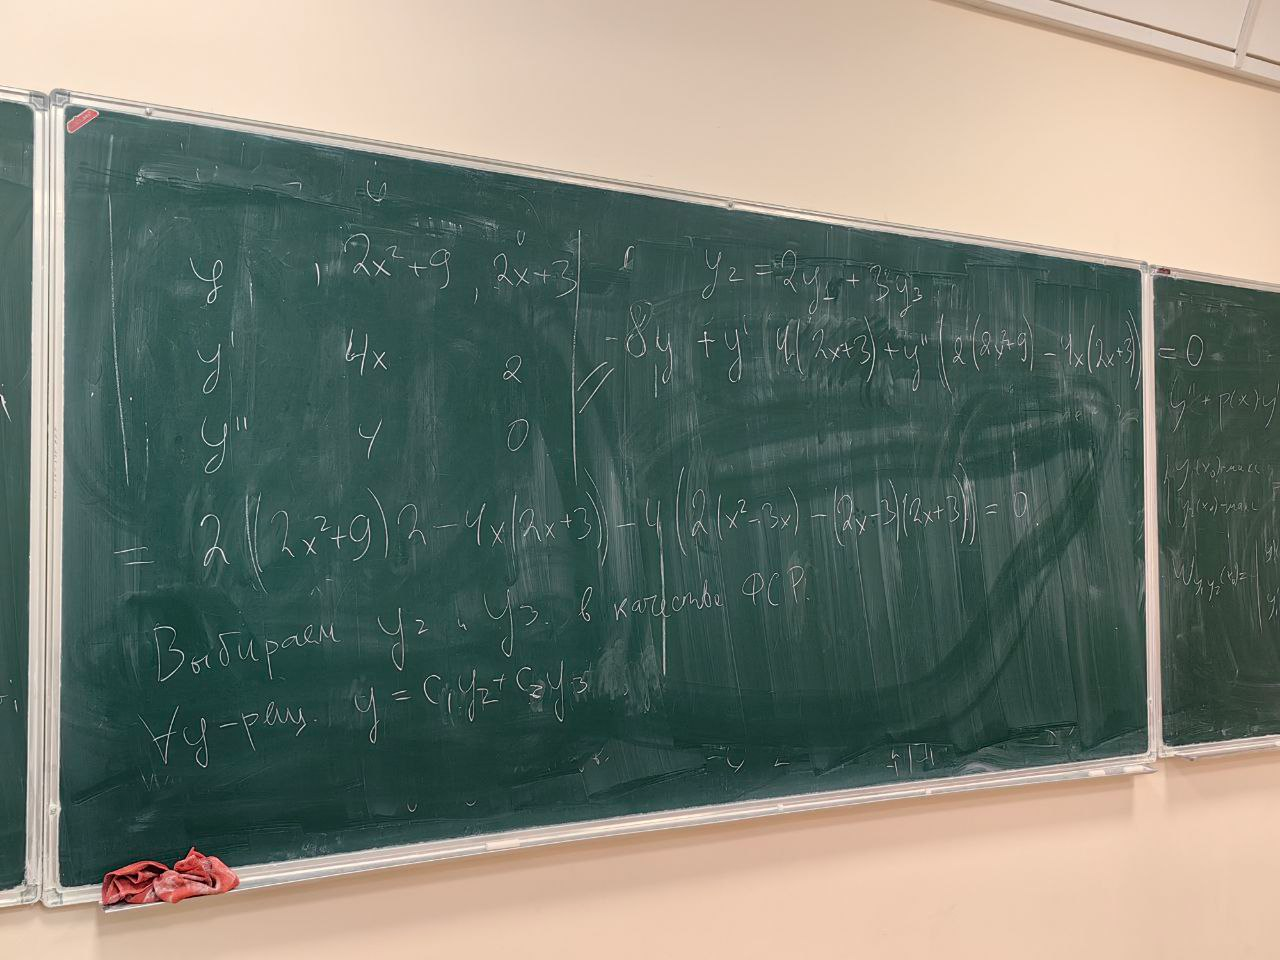 y , 2x² + 9 , 2x + 3
y' 4x 2
y'' 4 0
y₂ = 2y₁ + 3y₃
- 8y + y' 4(2x+3) + y'' (2(2x²+9) - 4x(2x+3)) = 0
= 2((2x²+9)2 - 4x(2x+3)) - 4(2(x²-3x) - (2x-3)(2x+3)) = 0.
Выбираем y₂ и y₃ в качестве ФСР.
∀y-реш. y = C₁y₂ + C₂y₃
y'' + p(x)y
y₁(x₀)-макс
y₂(x₀)-макс
W y₁y₂(x₀) =